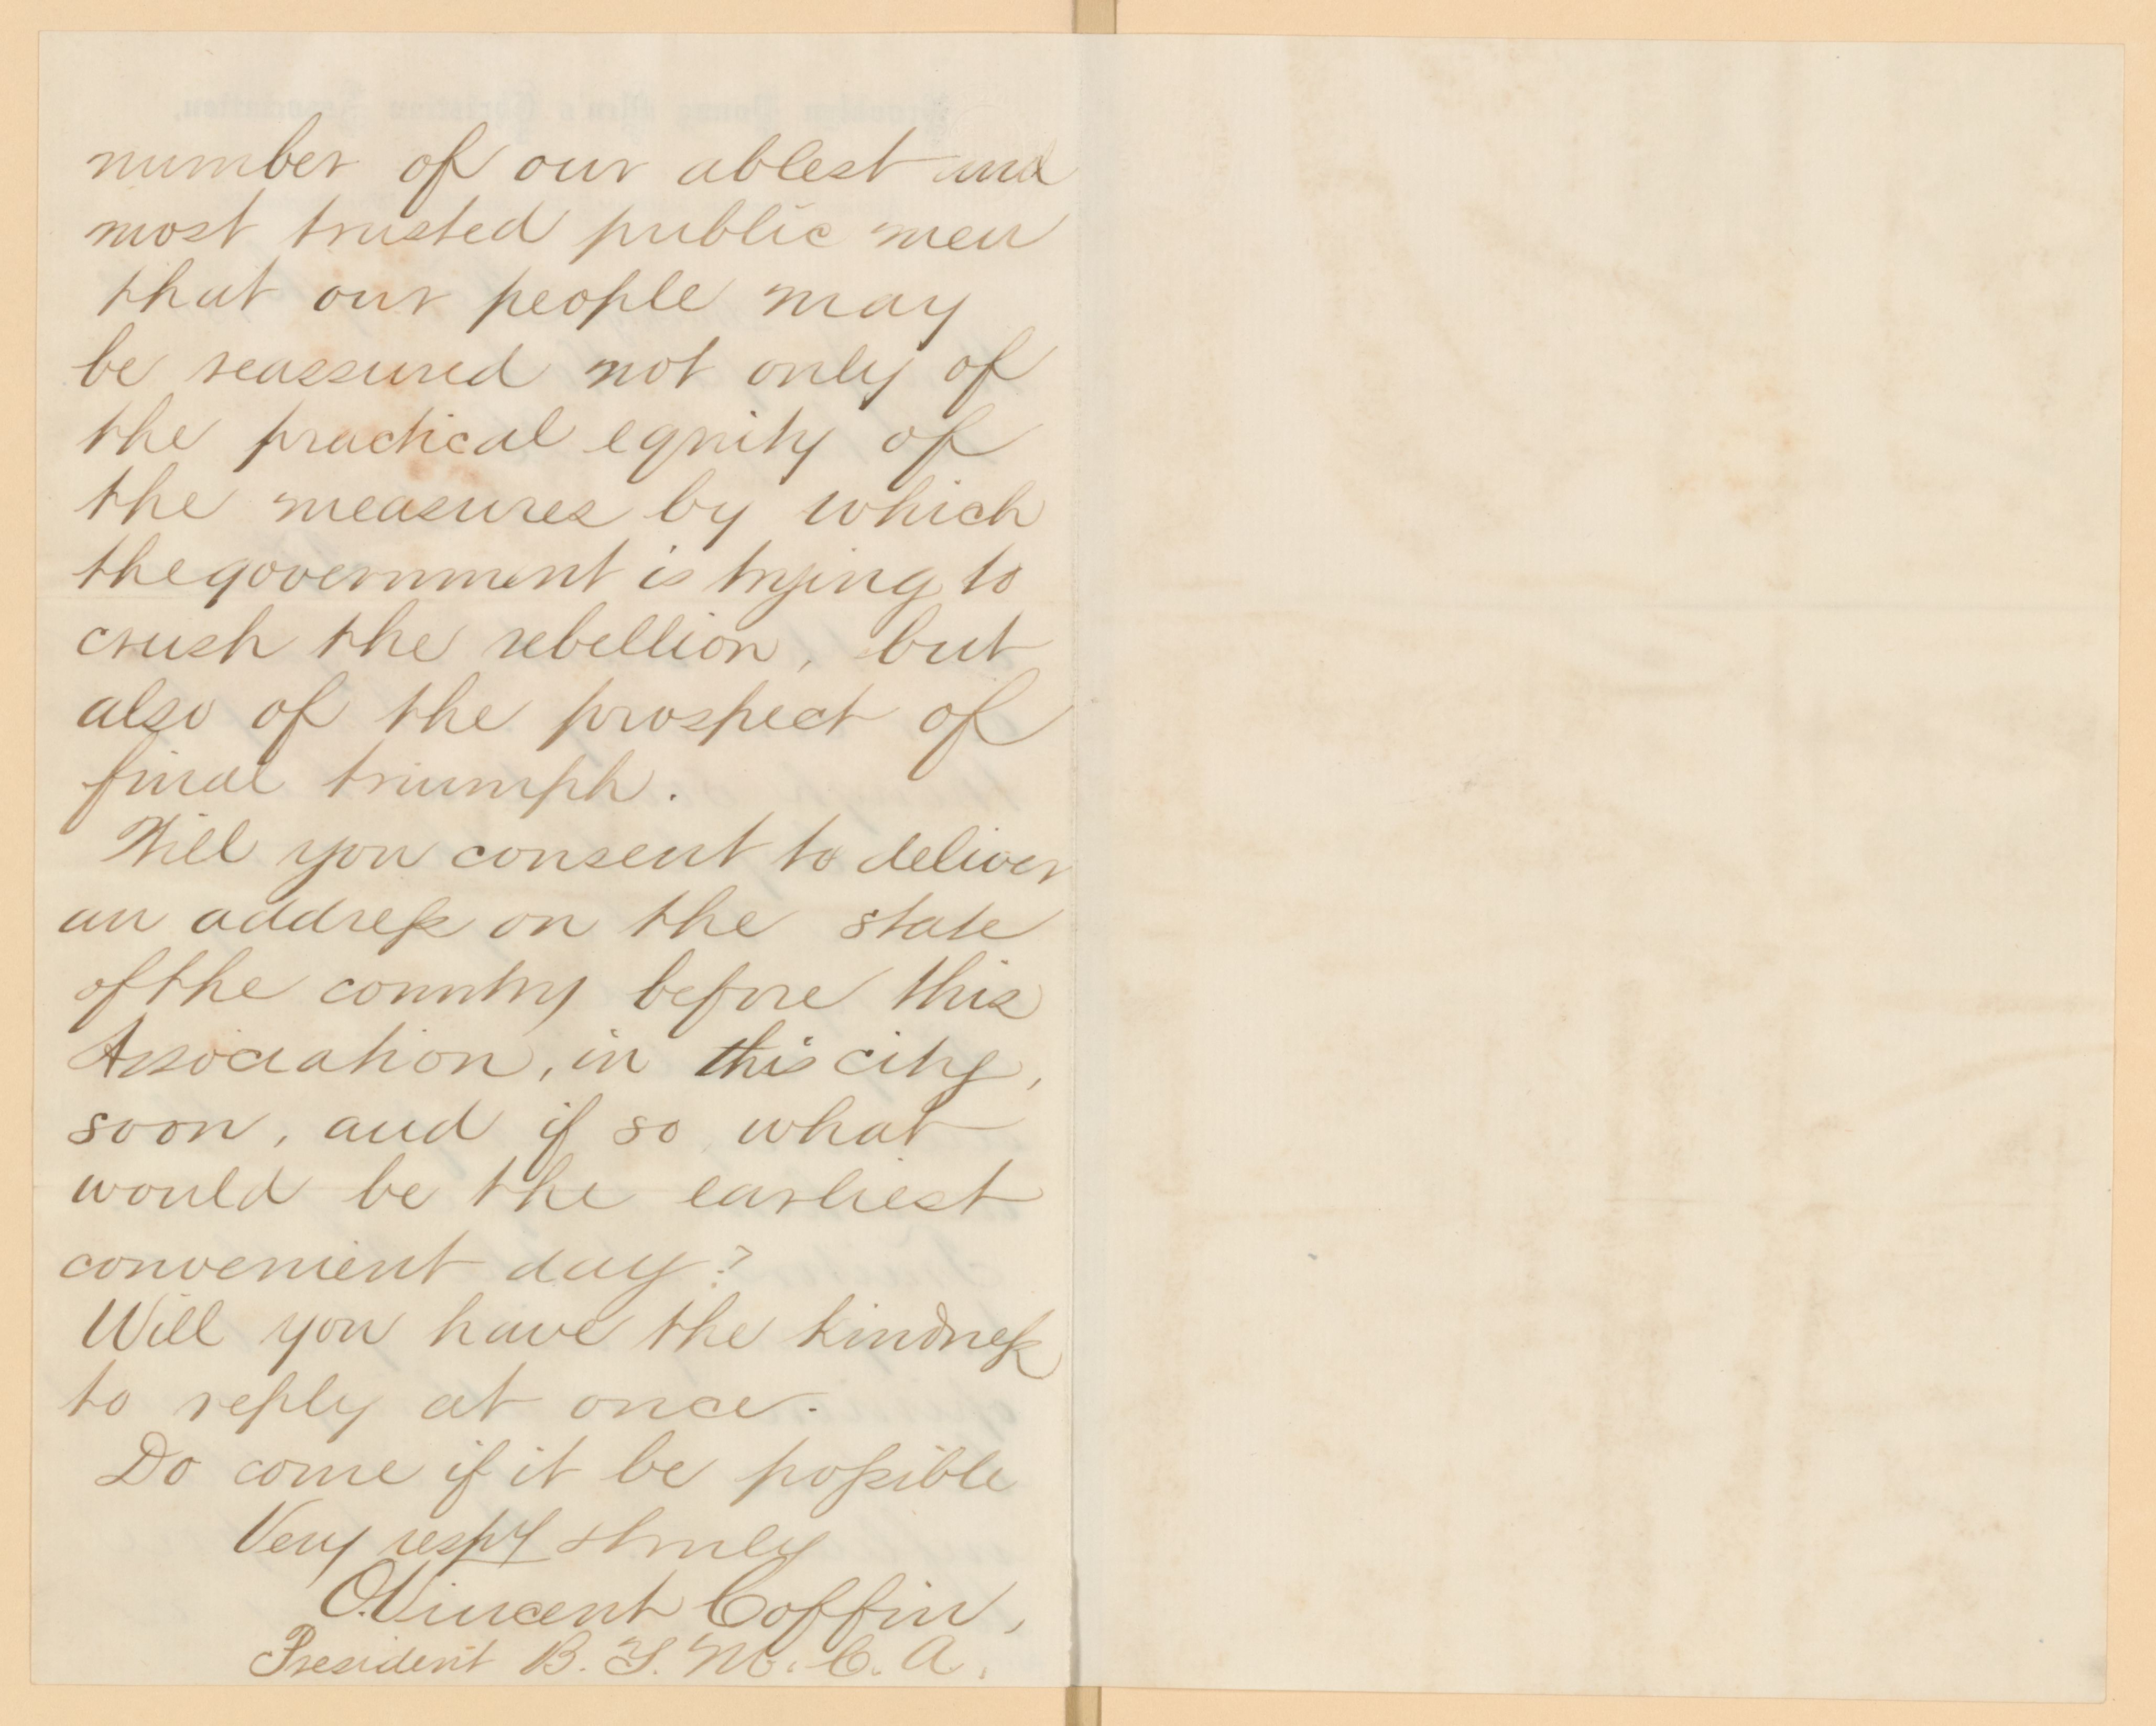 number of our ablest and
most trusted public men
that our people may
be reassured not only of
the practical equity of
the measures by which
the government is trying to
crush the rebellion, but
also of the prospect of
final triumph.
Will you consent to deliver
an address on the state
of the country before this
Association, in this city,
soon, and if so what
would be the earliest
convenient day?
Will you have the kindness
to reply at once.
Do come if it be possible
Very respy & truly
O. Vincent Coffin,
President B. Y. M. C. A.